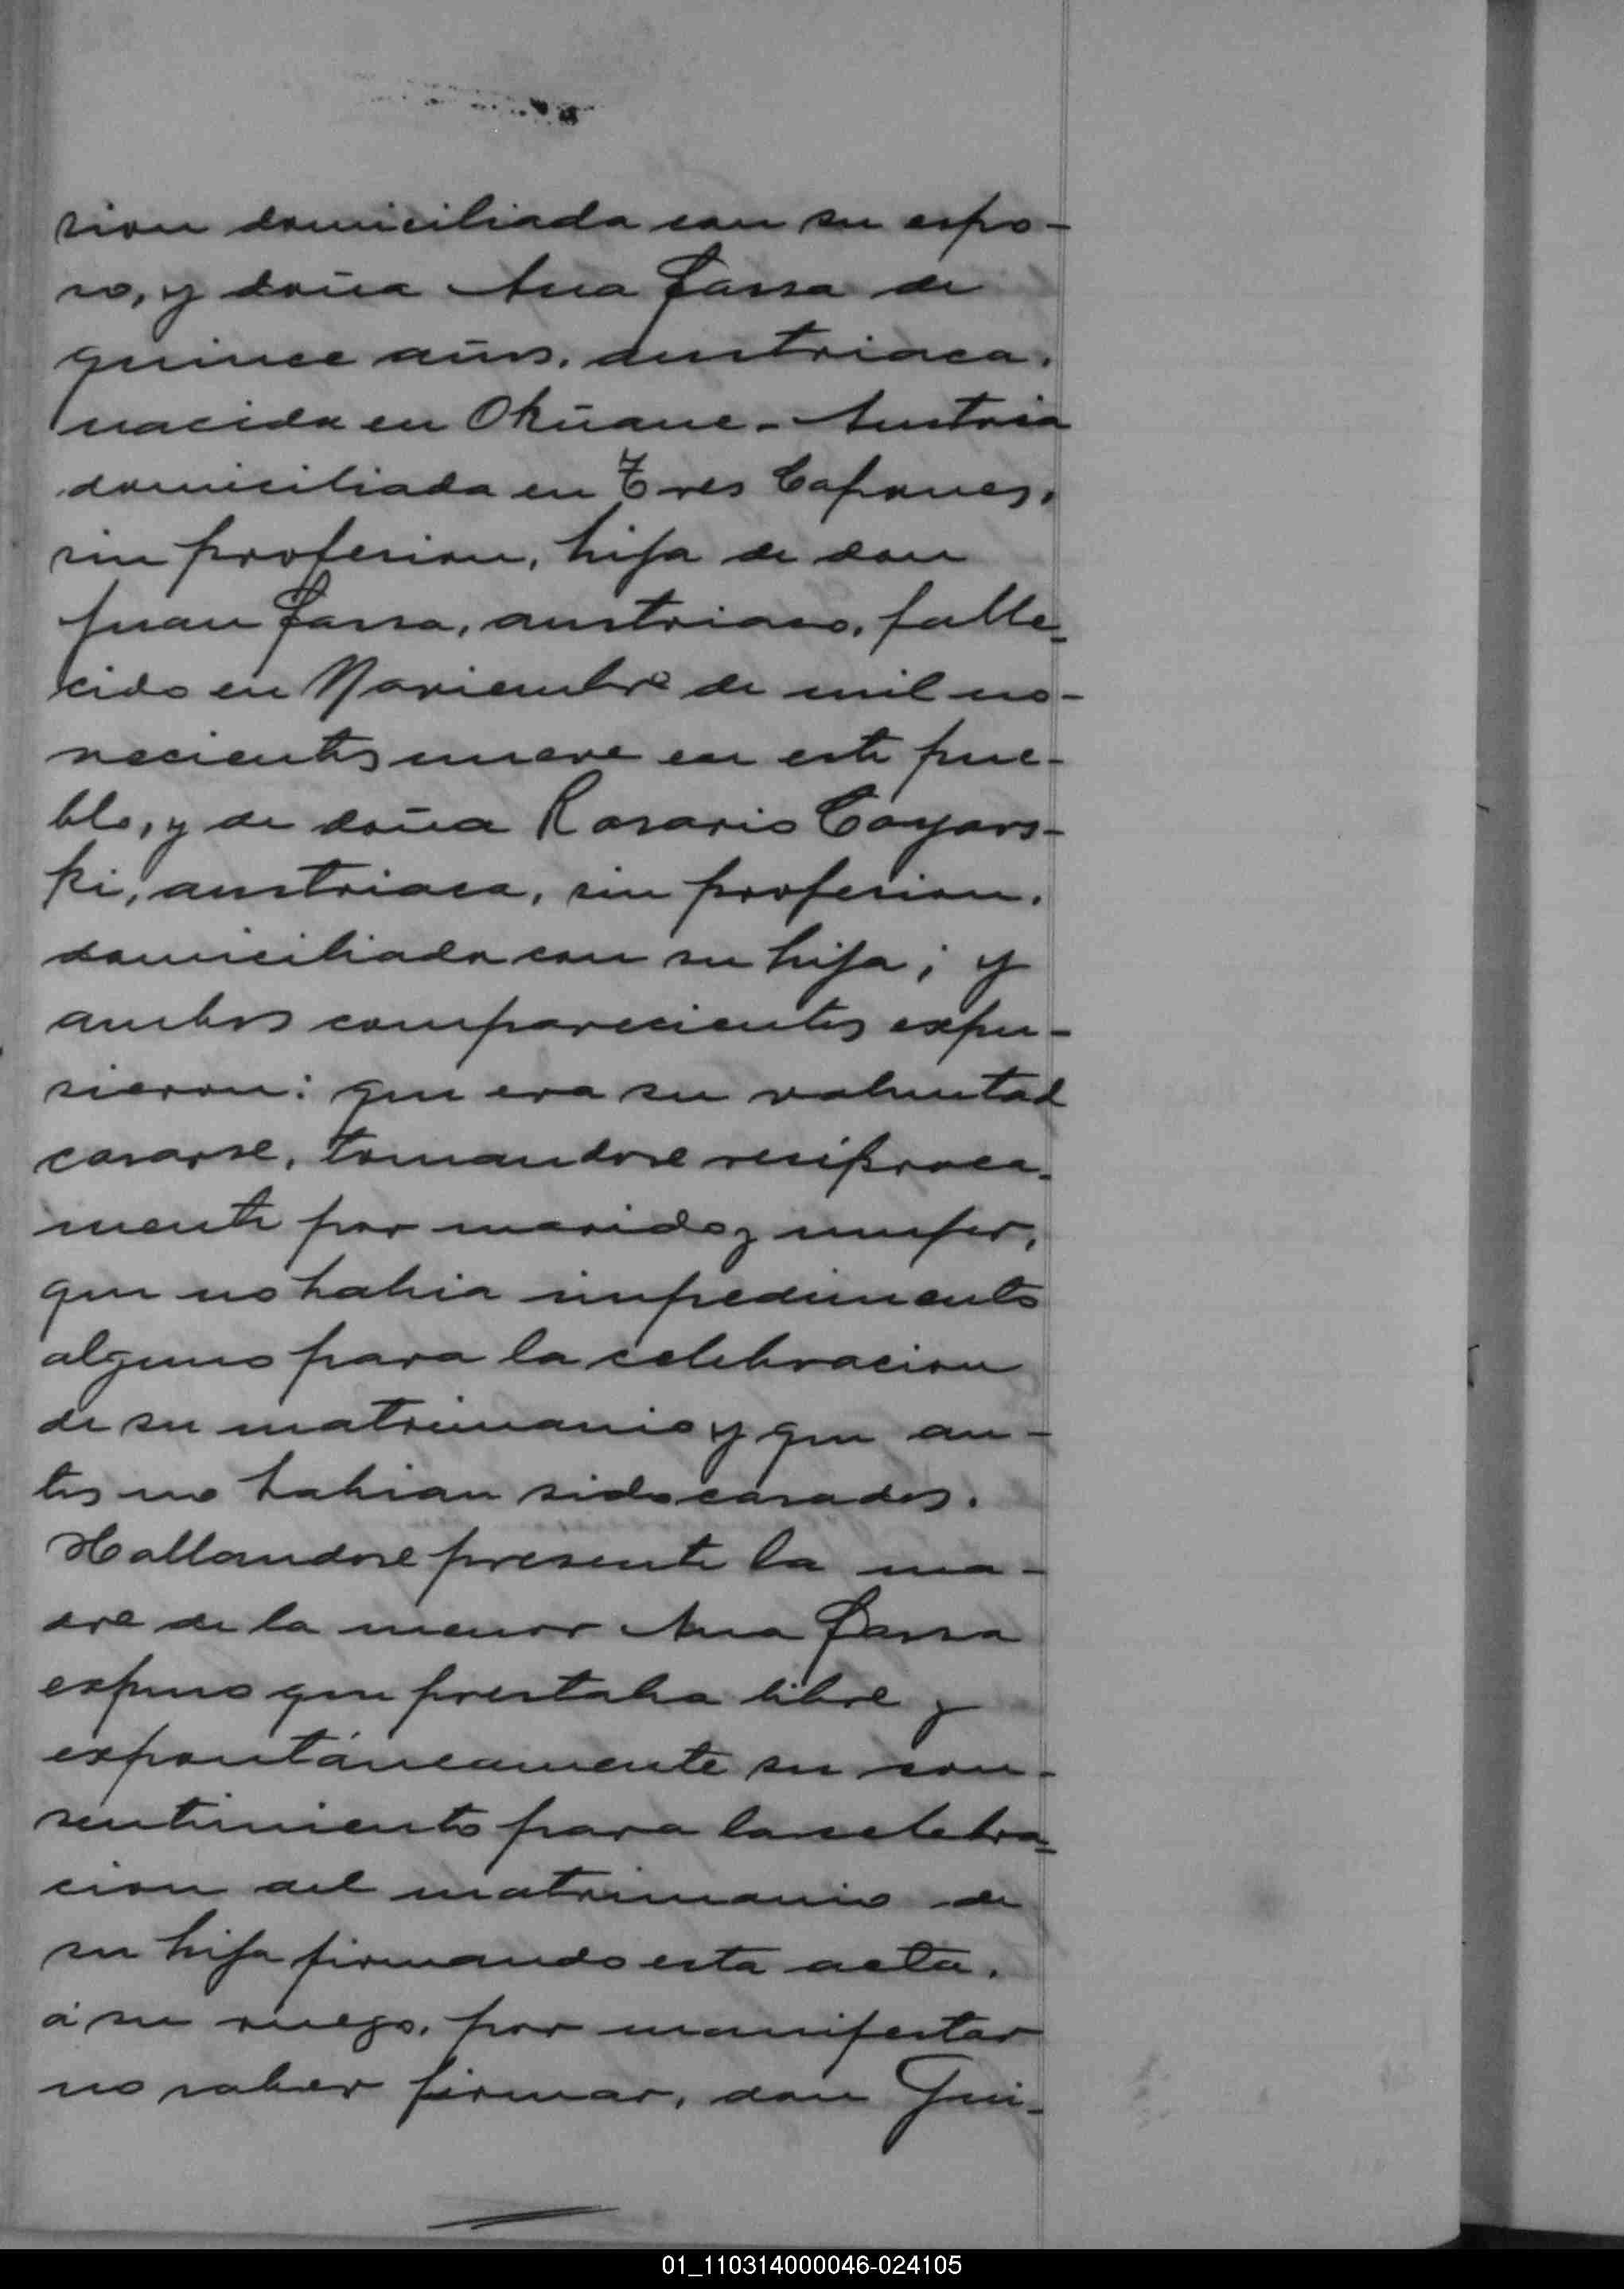 sion domiciliada con su espo-
so, y doña Ana Jassa de
quince años, austriaca,
nacida en Okñane - Austria
domiciliada en Tres Capones,
sin profesion, hija de don
Juan Jassa, austriaco, falle-
cido en Noviembre de mil no-
vecientos nueve en este pue-
blo, y de doña Rosario Coyars-
ki, austriaca, sin profesion,
domiciliada con su hija; y
ambos comparecientes expu-
sieron: que era su voluntad
casarse, tomandose reciproca-
mente por marido y mujer,
que no habia impedimento
alguno para la celebracion
de su matrimonio y que an-
tes no habian sido casados.
Hallandose presente la ma-
dre de la menor Ana Jassa
expuso que prestaba libre y
expontáneamente su con-
sentimiento para la celebra-
cion del matrimonio de
su hija firmando esta acta,
á su ruego, por manifestar
no saber firmar, don Gui-
01_110314000046-024105